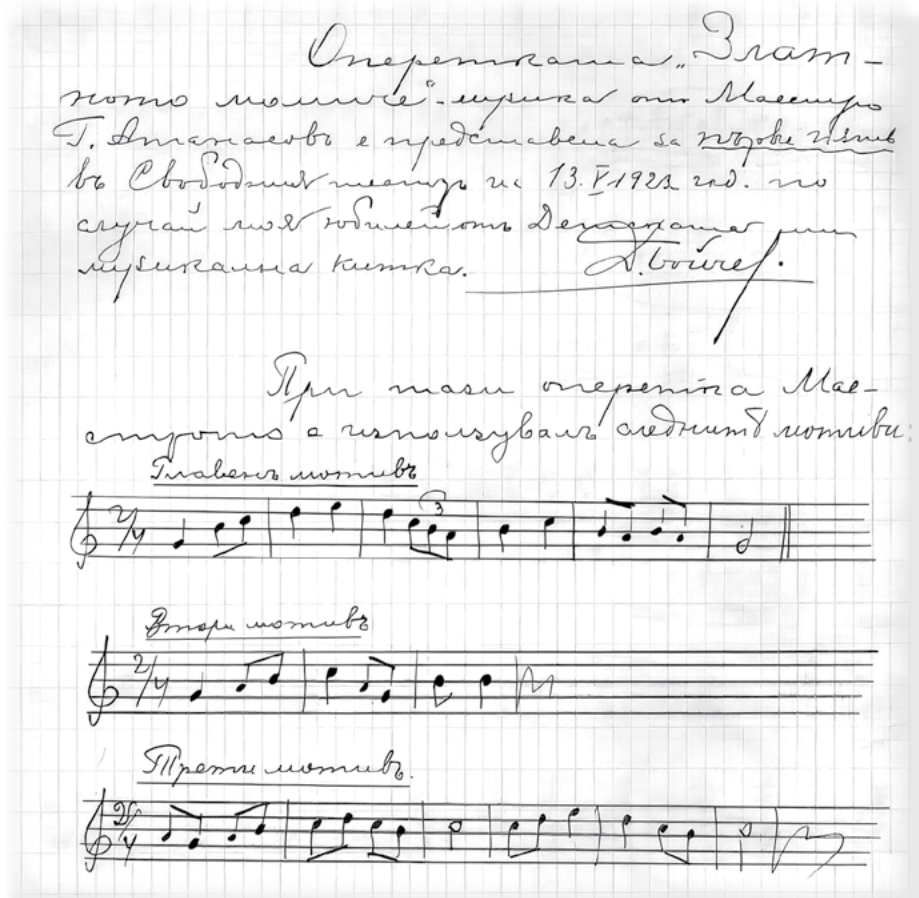 Оперетката „Злат-
ното момиче“ - лирика отъ Маестро
Г. Атанасовъ е представена за първи пѫть
въ Свободния театъръ на 13.V.1923 год. по
случай моя юбилей отъ Детската
музикална китка. Д. Бойчев.
При тази оперетка Мае-
строто е използувалъ следнитѣ мотиви:
Главенъ мотивъ
2/4
3
Втори мотивъ
2/4
Трети мотивъ.
2/4